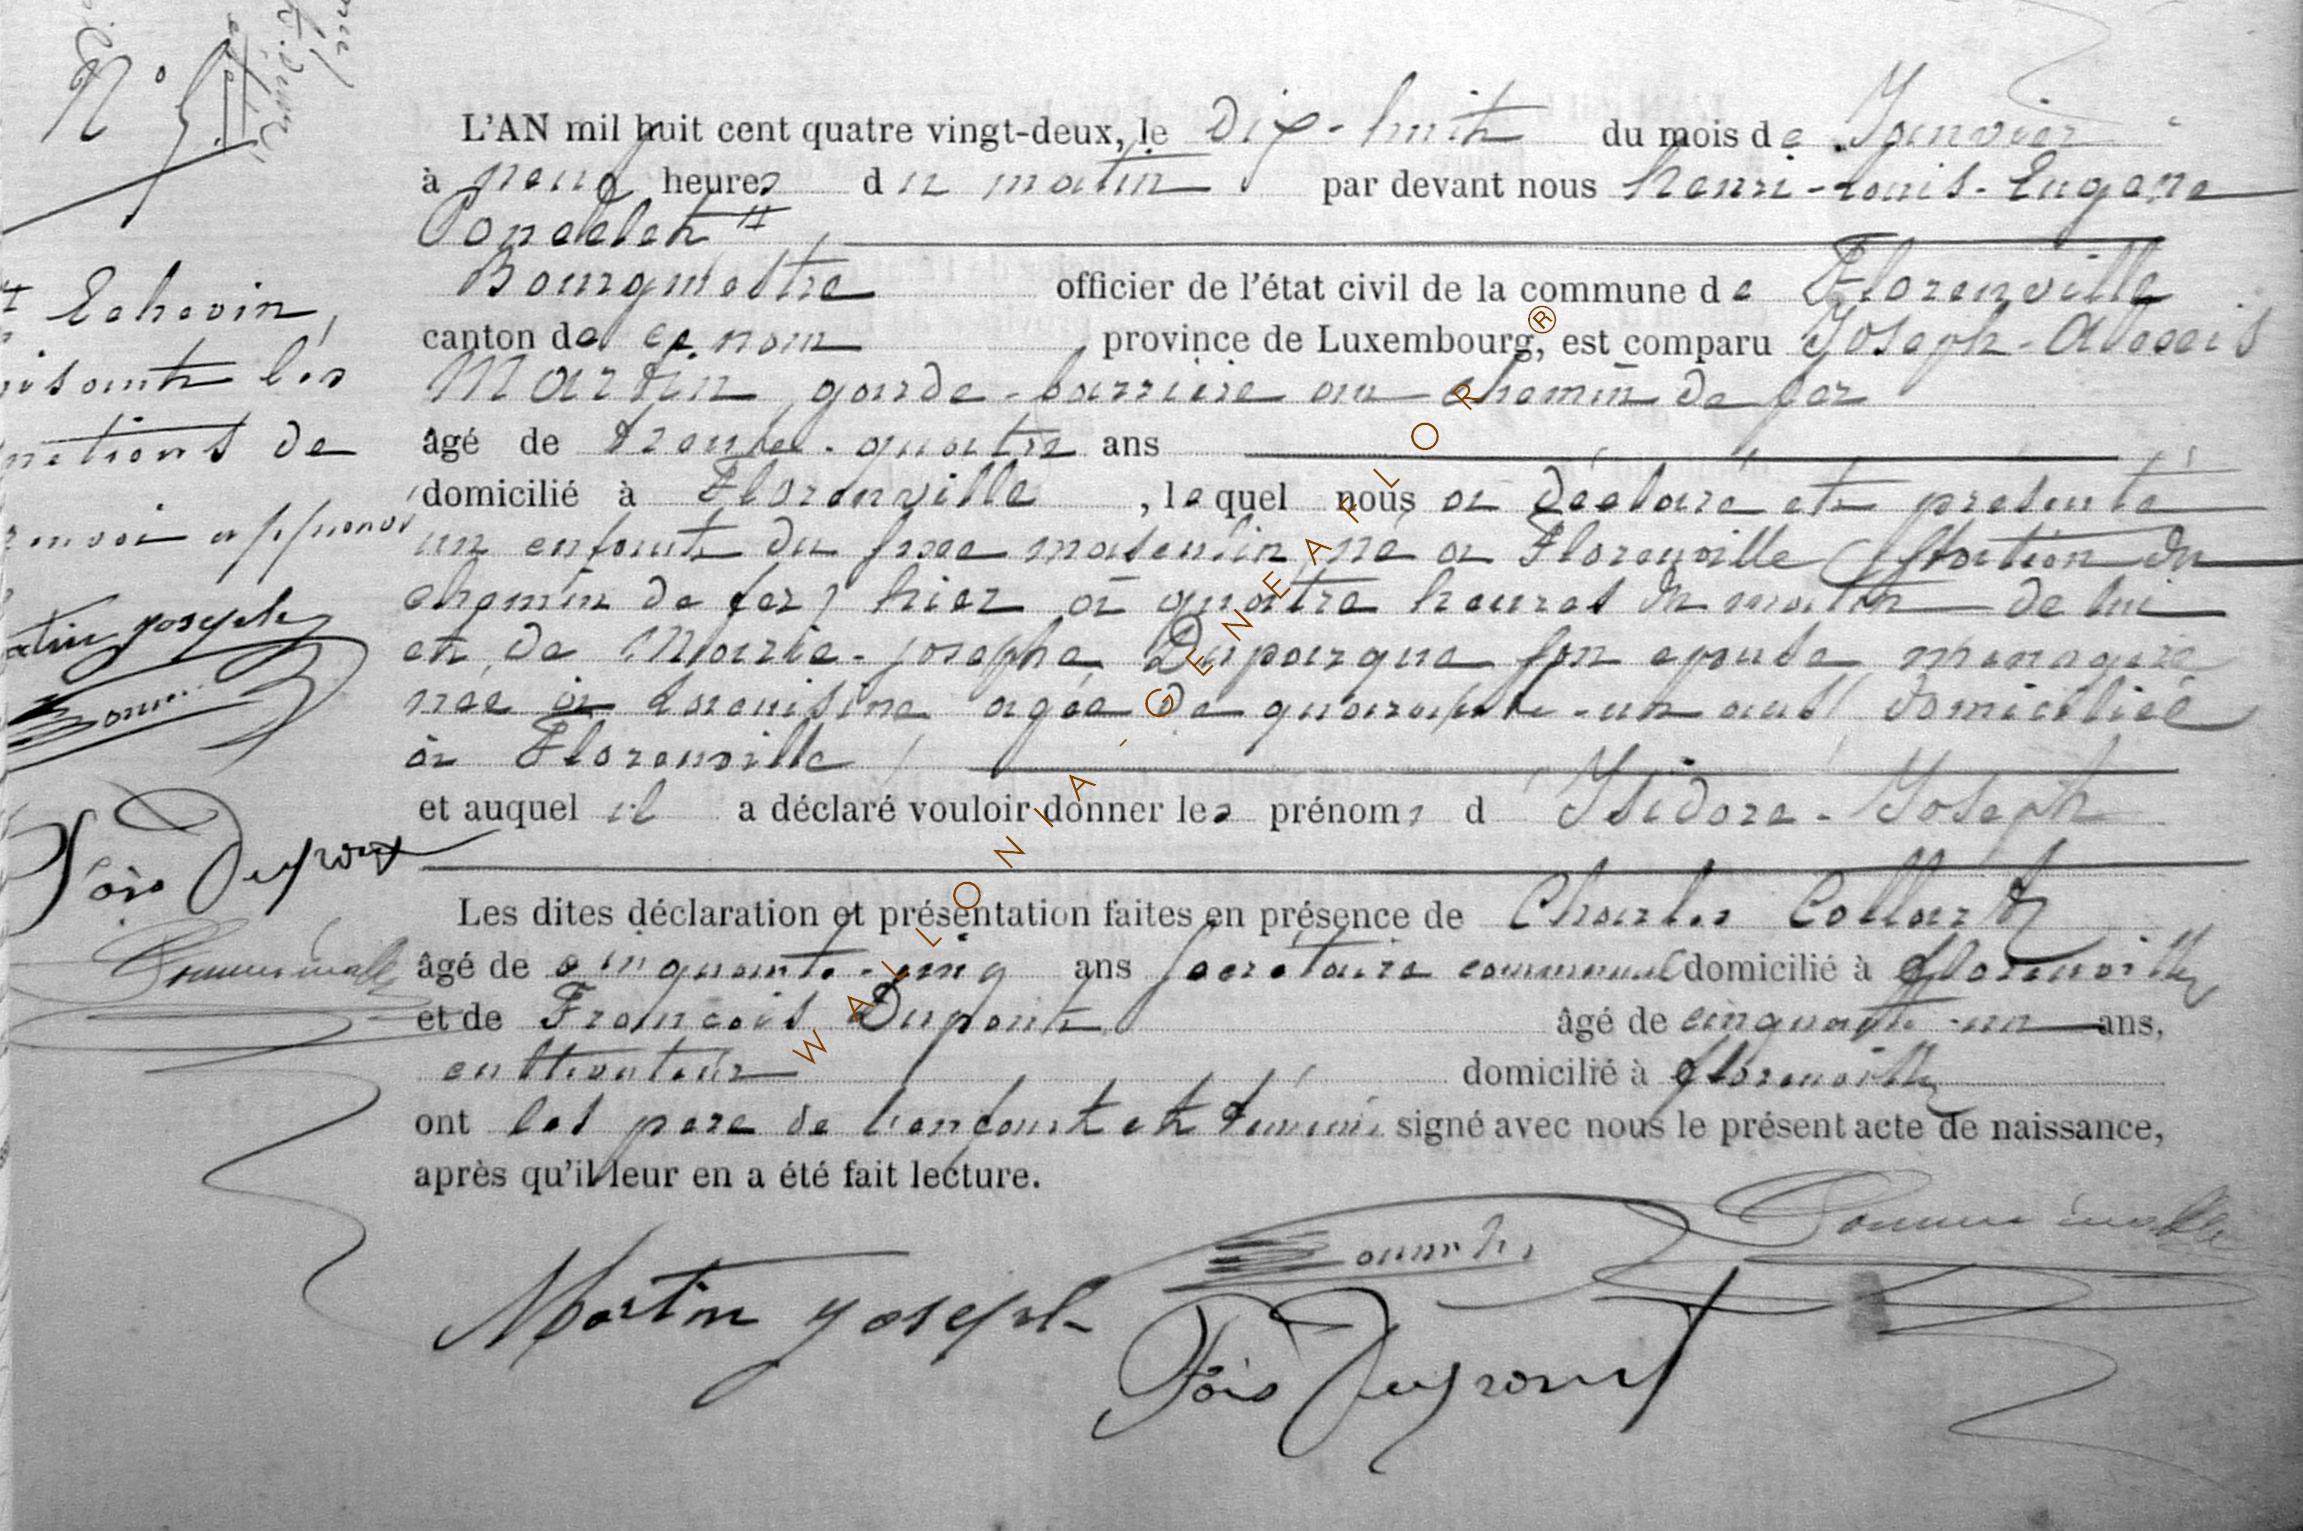 N° 5
L'AN mil huit cent quatre vingt-deux, le Dix-huit du mois de Janvier
à neuf heures du matin par devant nous henri-Louis-Eugene
Bourgmestre officier de l'état civil de la commune de Florenville
canton de ce nom province de Luxembourg, est comparu Joseph-Alexis
Martin garde-barriere au chemin de fer
âgé de trente-quatre ans
domicilié à Florenville, lequel nous a déclaré et présenté
un enfant du sexe masculin né a Florenville (station du
chemin de fer) hier à quatre heures du matin de lui
et de Marie-josephe son epouse menagere
née à agée de quarante-un ans domiciliée
à Florenville
et auquel il a déclaré vouloir donner les prénoms d'Isidore-Joseph
Les dites déclaration et présentation faites en présence de Charles Collart
âgé de cinquante-cinq ans secrétaire communal domicilié à florenville
et de François Dupont âgé de cinquante-un ans,
cultivateur domicilié à florenville
ont les pere de l'enfant et témoins signé avec nous le présent acte de naissance,
après qu'il leur en a été fait lecture.
Martin joseph
Echevin,
les
de
joseph
WALLONIA-GENEAFLOR®